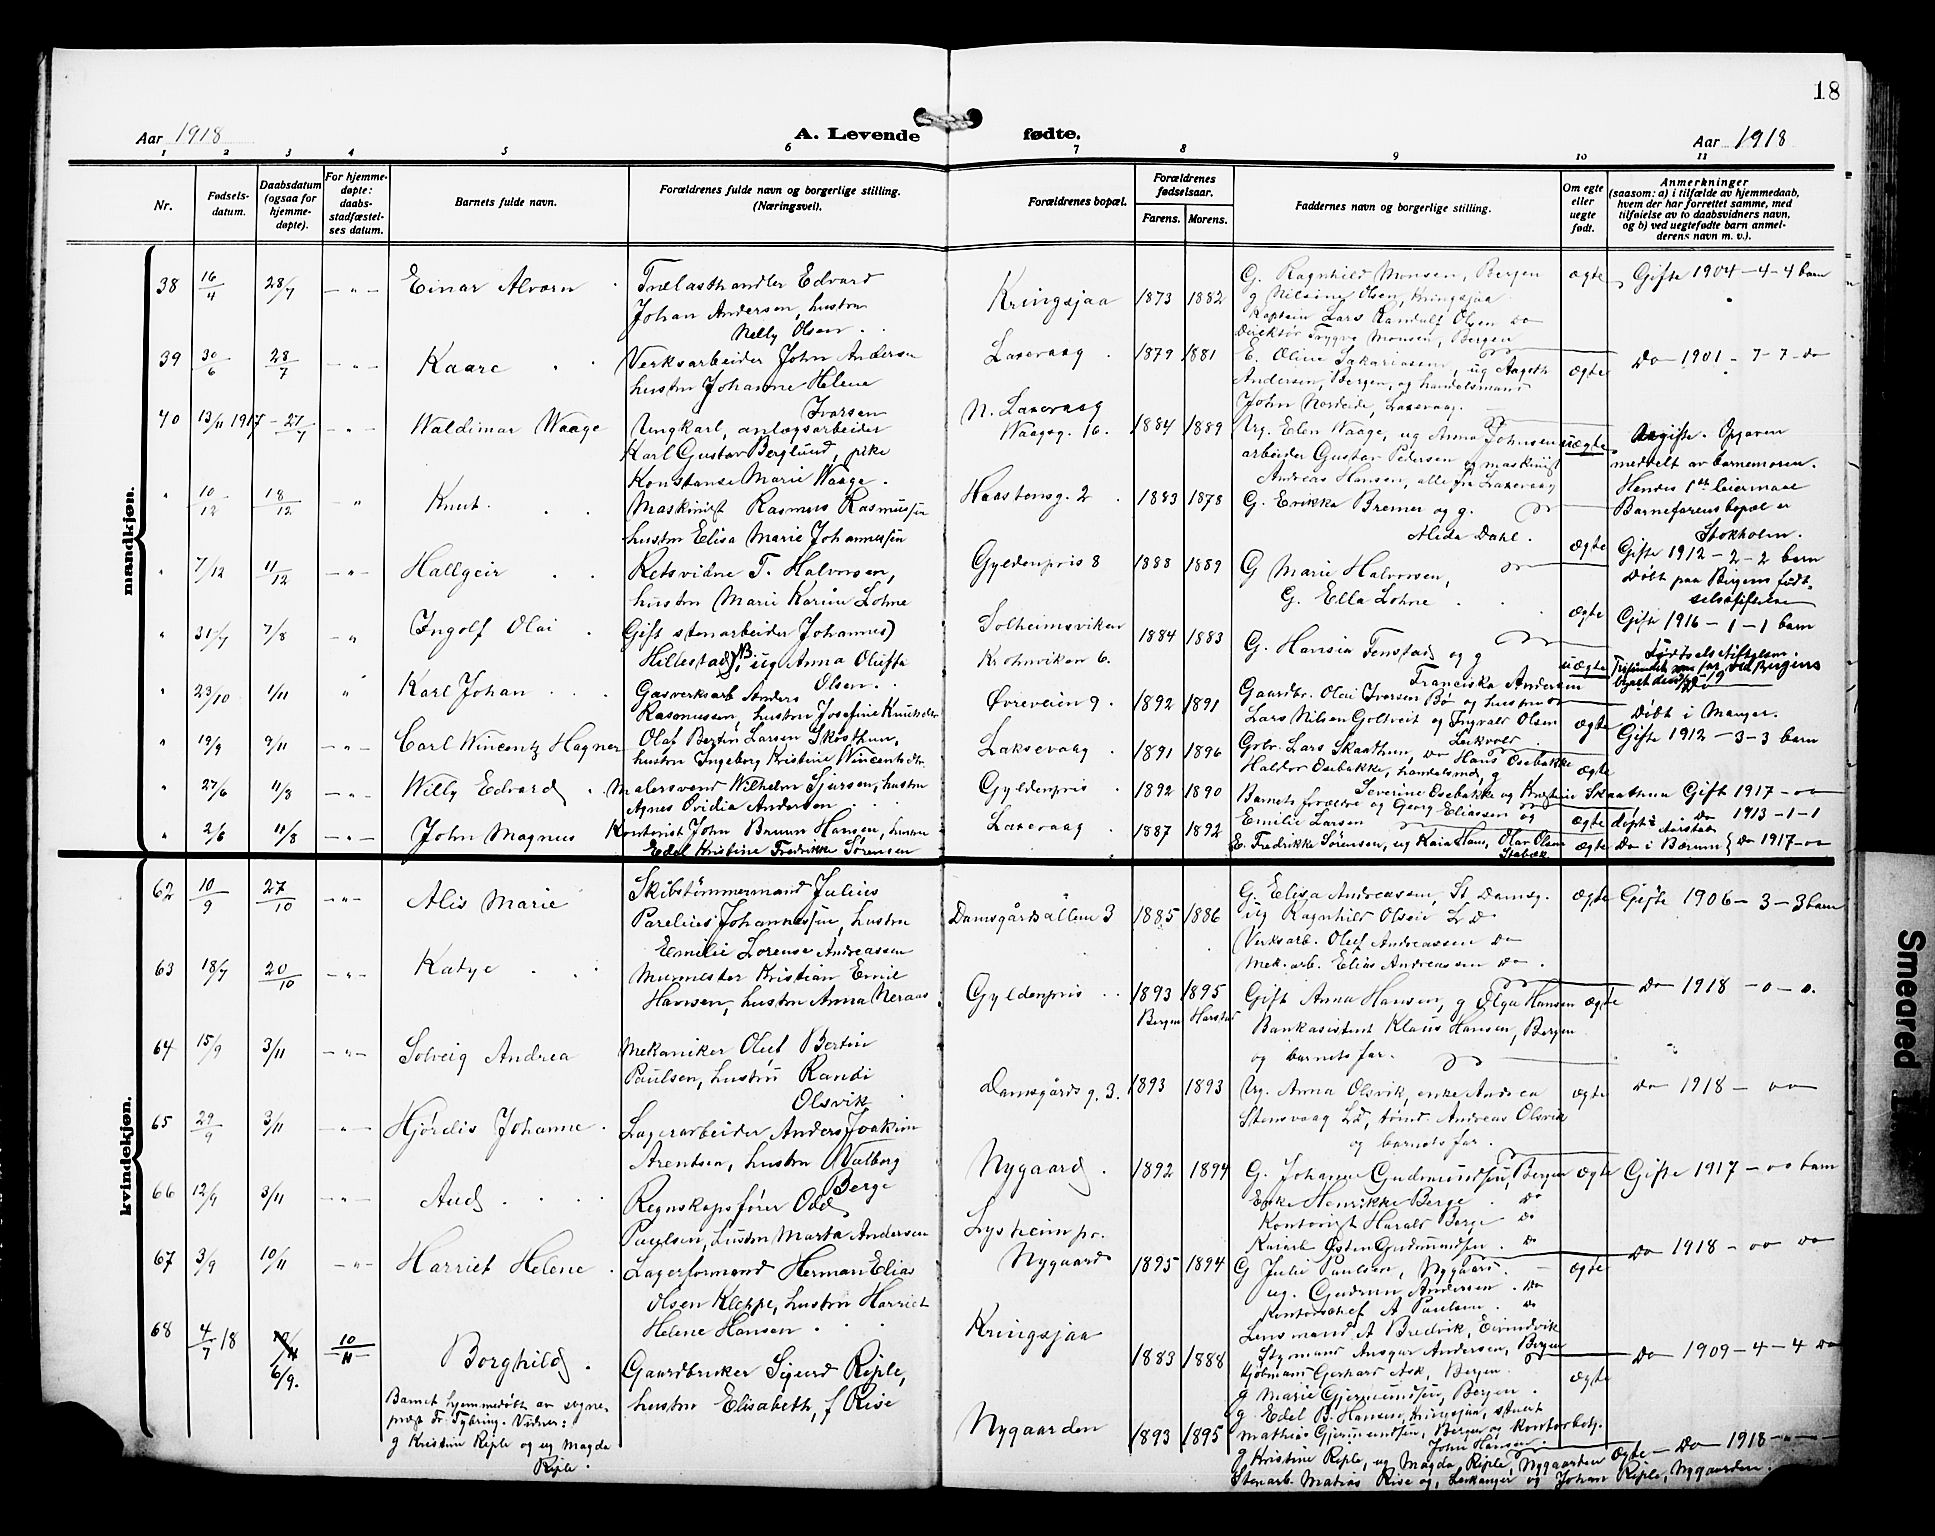 18
Aar 1918
A. Levende fødte.
Aar 1918
1 2 3 4 5 6 7 8 9 10 11
Nr.
Fødsels-
datum.
Daabsdatum
(ogsaa for
hjemme-
døpte).
For hjemme-
døpte:
daabs-
stadfæstel-
ses datum.
Barnets fulde navn.
Forældrenes fulde navn og borgerlige stilling.
(Næringsvei).
Forældrenes bopæl.
Forældrenes
fødselsaar.
Farens. Morens.
Faddernes navn og borgerlige stilling.
Om egte
eller
uegte
født.
Anmerkninger
(saasom: a) i tilfælde av hjemmedaab,
hvem der har forrettet samme, med
tilføielse av to daabsvidners navn,
og b) ved uegtefødte barn anmel-
derens navn m. v.).
mandkjøn.
38 16/4 28/7 —„— Einar Alvorn
Trælasthandler Edvard
Johan Andersen, hustru
Nelly Olsen
Kringsjaa 1873 1882
G. Ragnhild Monsen, Bergen
g Nilsine Olsen, Kringsjaa
Kaptein Lars Randulf Olsen Do
Direktør Trygve Monsen, Bergen
ægte Gifte 1904 – 4 – 4 barn
39 30/6 28/7 —„— Kaare
Verksarbeider John Andersen
hustru Johanne Helene
Ivarsen
Laxevaag 1879 1881
E. Oline Sakariasen, ug Aagoth
Andersen, Bergen, og handelsmand
John Nordeide, Laxevaag.
ægte Do 1901 – 7 – 7 – Do
40 13/11 1917 – 27/7 —„— Waldimar Waage
Ungkarl, anlægsarbeider
Karl Gustav Berglund, pike
Konstanse Marie Waage.
N. Laxevaag
Waagsg. 16. 1884 1889
Ug. Elen Waage, ug Anna Johnsen
arbeider Gustav Pedersen og maskinist
Andreas Hansen, alle fr Laxevaag
uægte Ugifte. Opgaven
meddelt av barnemoren.
Hendes 1ste leiermaal
Barnefarens bopæl er
Stokholm.
„ 10/12 18/12 „ Knut
Maskinist Rasmus Rasmussen
hustru Elisa Marie Johannessen
Haastensg. 2 1883 1878
G. Erikka Bremer og g.
Alida Dahl.
ægte Gifte 1912 – 2 – 2 barn
Døbt paa Bergens født-
selsstiftelse
„ 7/12 11/12 —„— Hallgeir
Retsvidne T. Halvorsen,
hustru Marie Karine Lohne
Gyldenpris 8 1888 1889
G Marie Halvorsen,
G. Ella Lohne
ægte Gifte 1916 – 1 – 1 barn
„ 31/7 7/8 „ Ingolf Olai
Gift stenarbeider Johannes
Hillestad, ug Anna Olufta
Olsen
Solheimsviken
Krohnviken 6. 1884 1883
G. Hansia Tenstad og g
Franciska Andersen
uægte Fødselsstiftelsen.
„ 23/10 1/11 „ Karl Johan
Gasverksarb Anders
Rasmussen, hustru Josefine Knutsdtr
Øvreveien 9. 1892 1891
Gaardbr. Olai Ivarsen Bø og hustru
Lars Nilsen Goltveit og Ingvald Olsen
Leikvold
ægte Døbt i Manger.
Gifte 1912 – 3 – 3 barn
„ 19/9 9/11 —„— Carl Wincentz Hagner
Olaf Bertin Larsen Skosthun,
hustru Ingeborg Kristine Wincentsdtr.
Laksevaag 1891 1896
Grbr. Lars Skaathun, Do Hans Osebakke
Haldor Osebakke, handelsmd, g
Severine Osebakke og Kristine Skaathun
ægte Gift 1917 – oo
„ 27/6 11/8 —„— Willy Edvard
Malersvend Wilhelm Sjursen, hustru
Agnes Ovidia Andersen
Gyldenpris 1892 1890
Barnets forældre og Georg Eliassen og
Emilie Larsen
ægte døpt i Aarstad Do 1913 – 1 – 1
„ 2/6 11/8 —„— John Magnus
Kontorist John Bruun Hansen, hustru
Edel Kristine Fredrikke Sørensen
Laxevaag 1887 1892
E. Fredrikke Sørensen, ug Kaia Hans, Olav Olsen
Stabæk
ægte Do i Bærum Do 1917 – oo
kvindekjøn.
62 10/9 27/10 —„— Alis Marie
Skibstømmermand Julius
Parelius Johannessen, hustru
Emilie Lorense Andreassen
Damsgårdsallèen 3 1885 1886
G Elisa Andreassen, St. Damsg.
ug Ragnhild Olsen Ld
Verksarb. Oluf Andreassen Do
Mek.arb. Elias Andreassen Do.
ægte Gifte 1906 – 3 – 3 barn
63 18/7 20/10 —„— Katye
Murmester Kristian Emil
Hansen, hustru Anna Neraas
Gyldenpris 1893 1895
Bergen Harstad
Gift Anna Hansen, g Olga Hansen
Bankasistent Klaus Hansen, Bergen
og barnets far.
ægte Do 1918 – o – o.
64 15/9 3/11 —„— Solveig Andrea
Mekaniker Oluf Bertin
Paulsen, hustru Randi
Olsvik
Damsgårdsg. 3. 1893 1893
Ug. Anna Olsvik, enke Andrea
Stensvaag Ld, tømd Andreas Olsvik
og barnets far.
ægte Do 1918 – oo
65 29/9 3/11 —„— Hjørdis Johanne
Lagerarbeider Anders Joakim
Arentsen, hustru Valborg
Berge
Nygaard 1892 1894
G. Johanne Gudmundsen, Bergen
Enke Henrikke Berge Do
Kontorist Harald Berge Do
Østen Gudmundsen. Do
ægte Gifte 1917 – oo barn
66 12/9 3/11 —„— Aud
Regnskapsfører Odd
Paulsen, hustru Marta Andersen
Lysheim pr.
Nygaard 1895 1894
G Julie Paulsen, Nygaard.
ug. Gudrun Andersen Do
Kontorchef A Paulsen Do
Lensmand A Bredvik, Eivindvik
ægte Do 1918 – oo Do
67 3/9 10/11 —„— Harriet Helene
Lagerformand Herman Elias
Olsen Kleppe, hustru Harriet
Helene Hansen
Kringsjaa 1883 1888
Styrmand Ansgar Andersen, Bergen
Kjøbmand Gerhard Ask, Bergen
g Marie Gjermundsen, Bergen
g. Edel B. Hansen, Kringsjaa, stuert
Mathias Gjermundsen, Bergen og kontorbetj.
John Hansen.
ægte Do 1909 – 4 – 4 Do
68 4/7 18 10/11 6/9. 10/11 Borghild
Gaardbruker Sigurd Riple,
hustru Elisabeth, f Rise
Nygaarden 1893 1895
g Kristine Riple, ug Magda Riple, Nygaarden
Stenarb. Matias Rise og, Leikanger og Johan Riple, Nygaarden.
ægte – Do – 1918 –
Barnet hjemmedøbt av sogne-
prest Fr. Tybring. Vidner:
g Kristine Riple og ug Magda
Riple.
Smeared